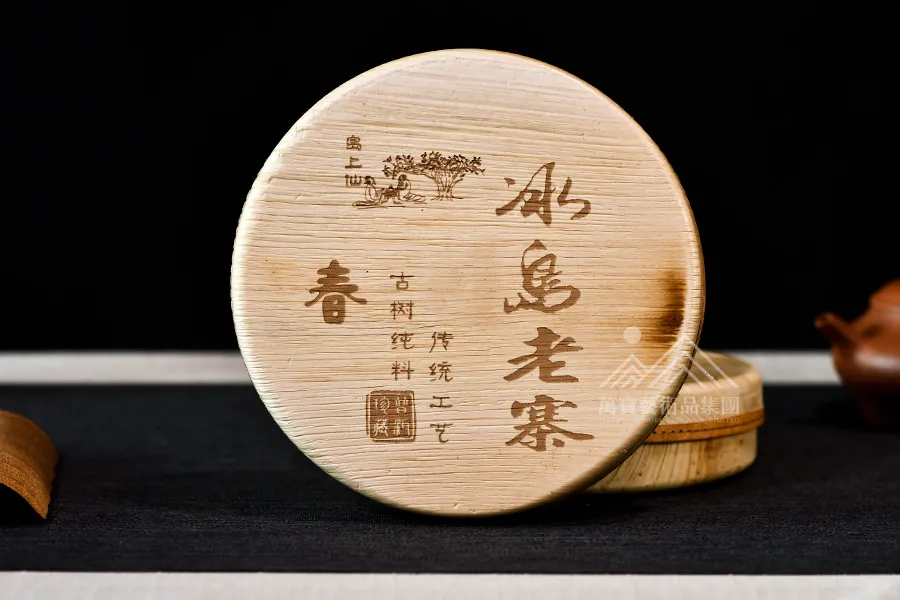 冰岛老寨
传统工艺
古树纯料
春
上仙
珍藏
萬寶藝術品集團